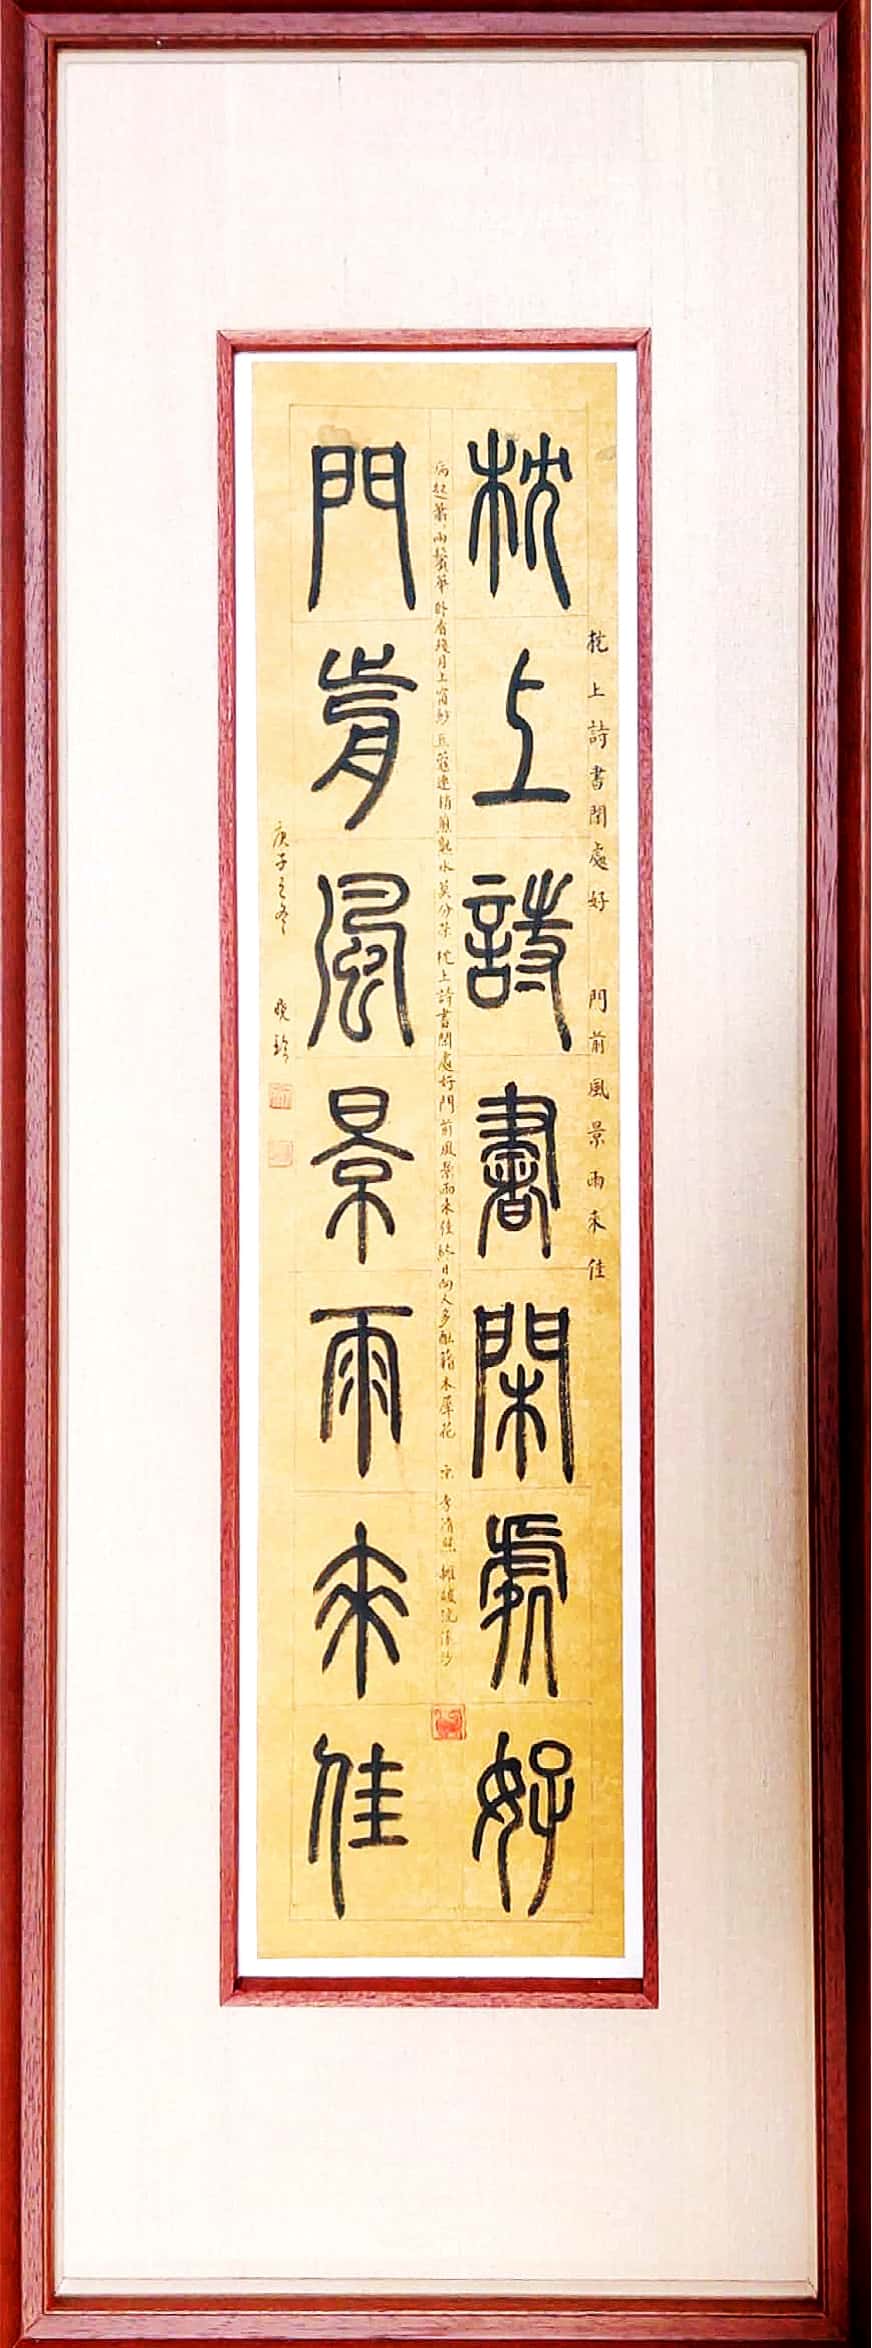 枕上詩書閒處好　門前風景雨來佳
枕上詩書閑處好
病起蕭〻兩鬢華卧看殘月上窗紗豆蔻連梢煎熟水莫分茶枕上詩書閒處好門前風景雨來佳終日向人多醞藉木犀花　宋　李清照　攤破浣溪沙
門前風景雨來佳
庚子之冬　曉玲